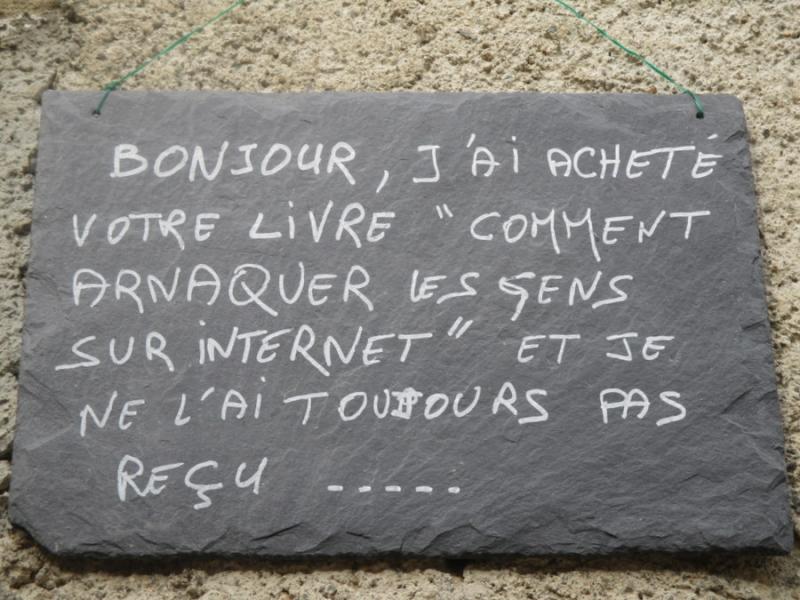 BONJOUR, J'AI ACHETÉ
VOTRE LIVRE "COMMENT
ARNAQUER LES GENS
SUR INTERNET" ET JE
NE L'AI TOUJOURS PAS
REÇU -----